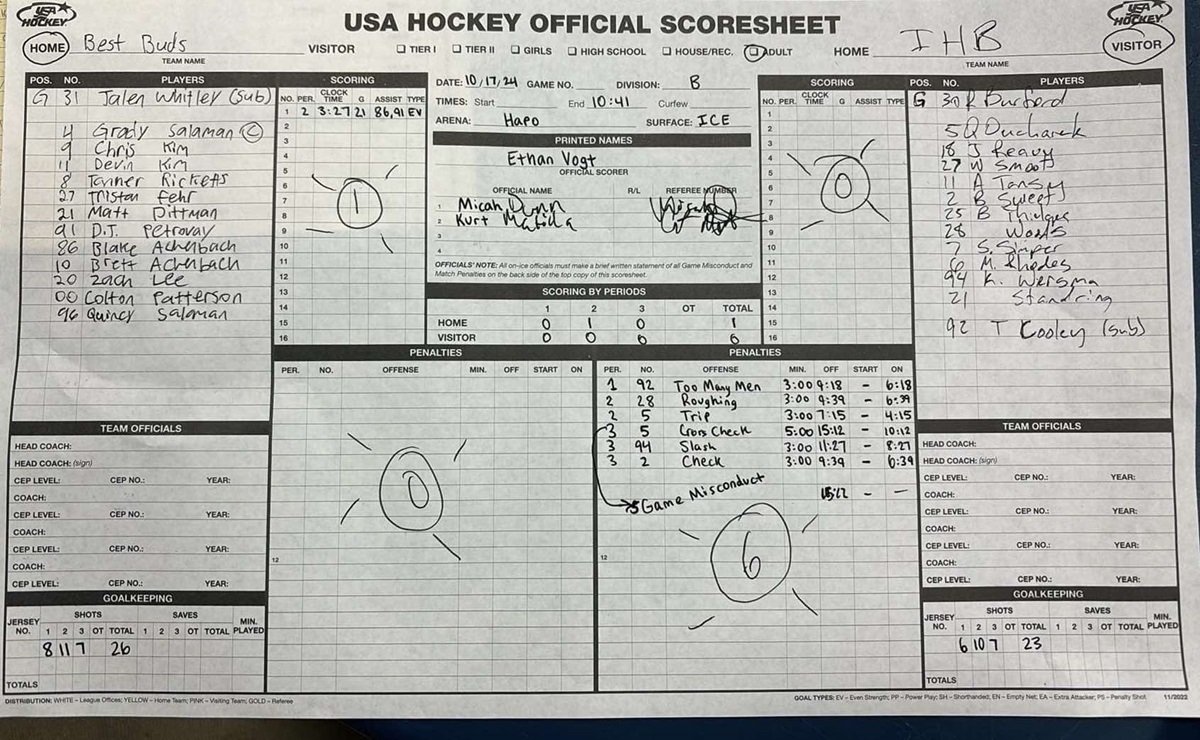 USA HOCKEY
USA HOCKEY OFFICIAL SCORESHEET
USA HOCKEY
HOME Best Buds VISITOR
TEAM NAME
☐ TIER I ☐ TIER II ☐ GIRLS ☐ HIGH SCHOOL ☐ HOUSE/REC. ☐ ADULT
HOME IHB VISITOR
TEAM NAME
POS. NO. PLAYERS
G 31 Jalen Whitley (sub)
4 Grady Salaman (C)
9 Chris Kim
11 Devin Kim
8 Tanner Ricketts
27 Tristan Fehr
21 Matt Dittman
91 D.J. Petrovay
86 Blake Achenbach
10 Brett Achenbach
20 Zach Lee
00 Colton Patterson
96 Quincy Salaman
SCORING
NO. PER. CLOCK TIME G ASSIST TYPE
1 2 3:27 21 86,91 EV
2
3
4
5
6
7
8
9
10
11
12
13
14
15
16
1
DATE: 10/17/24 GAME NO. DIVISION: B
TIMES: Start End 10:41 Curfew
ARENA: Hapo SURFACE: ICE
PRINTED NAMES
Ethan Vogt
OFFICIAL SCORER
OFFICIAL NAME R/L REFEREE NUMBER
1 Micah Dunn
2 Kurt
3
4
OFFICIALS' NOTE: All on-ice officials must make a brief written statement of all Game Misconduct and
Match Penalties on the back side of the top copy of this scoresheet.
SCORING BY PERIODS
1 2 3 OT TOTAL
HOME 0 1 0 1
VISITOR 0 0 0 0
SCORING
NO. PER. CLOCK TIME G ASSIST TYPE
1
2
3
4
5
6
7
8
9
10
11
12
13
14
15
16
0
POS. NO. PLAYERS
G 30 R Burford
5 Q Ducharek
18 J Reavy
27 W Smoot
11 A Tansy
2 B Sweet
25 B
28 Woods
7 S.
6 M. Rhodes
94 K. Wersma
21 Standring
92 T Cooley (sub)
PENALTIES
PER. NO. OFFENSE MIN. OFF START ON
0
12
PENALTIES
PER. NO. OFFENSE MIN. OFF START ON
1 92 Too Many Men 3:00 9:18 - 6:18
2 28 Roughing 3:00 9:39 - 6:39
2 5 Trip 3:00 7:15 - 4:15
3 5 Cross Check 5:00 15:12 - 10:12
3 94 Slash 3:00 11:27 - 8:27
3 2 Check 3:00 9:39 - 6:39
5 Game Misconduct 15:12 - -
6
12
TEAM OFFICIALS
HEAD COACH:
HEAD COACH: (sign)
CEP LEVEL: CEP NO.: YEAR:
COACH:
CEP LEVEL: CEP NO.: YEAR:
COACH:
CEP LEVEL: CEP NO.: YEAR:
COACH:
CEP LEVEL: CEP NO.: YEAR:
GOALKEEPING
JERSEY NO. SHOTS SAVES MIN. PLAYED
1 2 3 OT TOTAL 1 2 3 OT TOTAL
8 11 7 26
TOTALS
TEAM OFFICIALS
HEAD COACH:
HEAD COACH: (sign)
CEP LEVEL: CEP NO.: YEAR:
COACH:
CEP LEVEL: CEP NO.: YEAR:
COACH:
CEP LEVEL: CEP NO.: YEAR:
COACH:
CEP LEVEL: CEP NO.: YEAR:
GOALKEEPING
JERSEY NO. SHOTS SAVES MIN. PLAYED
1 2 3 OT TOTAL 1 2 3 OT TOTAL
6 10 7 23
TOTALS
DISTRIBUTION: WHITE – League Offices; YELLOW – Home Team; PINK – Visiting Team; GOLD – Referee
GOAL TYPES: EV – Even Strength; PP – Power Play; SH – Shorthanded; EN – Empty Net; EA – Extra Attacker; PS – Penalty Shot. 11/2023